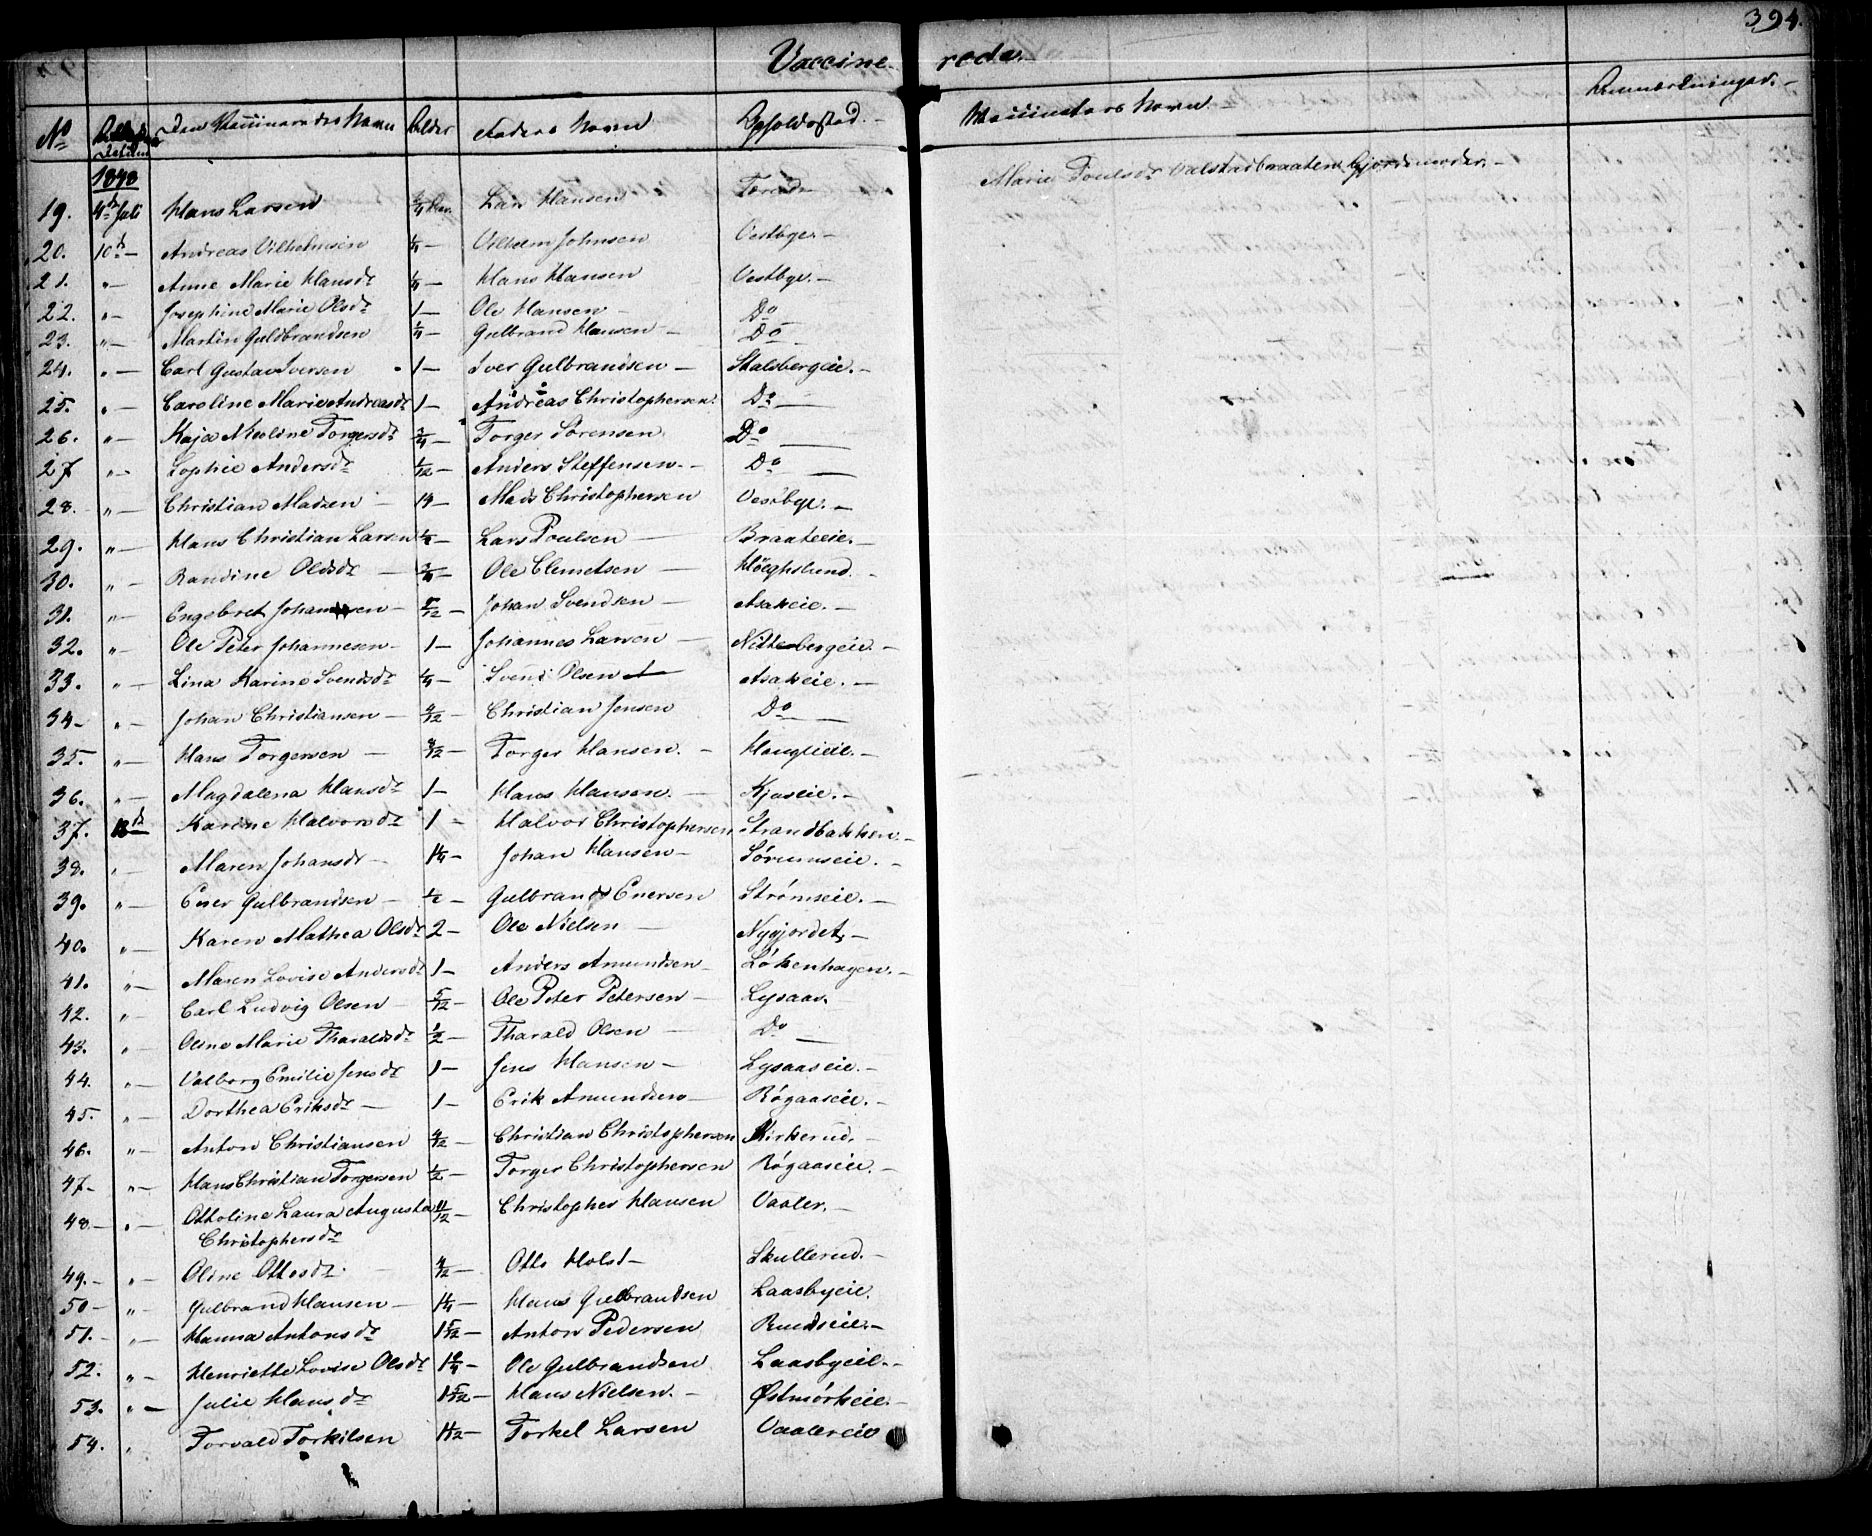 394.
Vaccine- rede.
No Den Vaccineredes Navn Alder Faders Navn Opholdssted. Vaccinators Navn Anmærkninger.
1848
19. 4de Juli Hans Larsen 3/4 Lars Hansen Marie Poulsdr Valstadbraaten Gjordemoder.
20. 10de — Andreas Vilhelmsen 1/4 — Vilhelm Johnsen Vestbye. —
21. " — Anne Marie Hansdr 1/4 — Hans Hansen Vestbye. —
22. " — Josephine Marie Olsdr 1 — Ole Hansen — Do
23. " — Martin Guldbrandsen 1/4 — Gulbrand Hansen — Do
24. " — Carl Gustav Iversen 1 — Iver Gulbrandsen — Stalsbergeie. —
25. " — Caroline Marie Andreasdr 1 — Andreas Christophersen Do
26. " — Kaja Torgersdr 3/4 — Torger Sørensen Do
27 " — Sophie Andersdr 1/12 — Anders Steffensen. — Do
28. " — Christian Madsen — 14 — Mads Christophersen Vestbye. —
29. " — Hans Christian Larsen 1/2 — Lars Poulsen — Braateeie. —
30. " — Randine Olsdr — 3/4 — Ole Clemetsen — Høeghslund. -
31. " — Engebret Johansen — 5/12 — Johan Svendsen — Asakeie. —
32. " — Ole Peter Johannesen — 1 — Johannes Larsen — Nittebergeie. —
33. " — Lina Karine Svendsdr 1/4 — Svend Olsen — Asakeie. —
34 — " — Johan Christiansen — 9/12 — Christian Jensen Do
35. " — Hans Torgersen — 8/12 — Torger Hansen. — Hauglieie. —
36. " — Magdalena Hansdr 1 — Hans Hansen. — Kjuseie. —
37. 13de Karine Halvorsdr 1 — Halvor Christophersen Strandbakken. —
38. " Maren Johansdr — 1 1/4 — Johan Hansen — Sørumseie. —
39. " — Ener Gulbrandsen — 1/2 — Gulbrand Enersen Strømseie. —
40. " — Karen Mathea Olsdr 2 — Ole Nielsen — Nygjordet. —
41. " — Maren Lovise Andersdr 1 — Anders Amundsen — Løkenhagen. —
42. " Carl Ludvig Olsen — 5/12 — Ole Peter Petersen — Lysaas.
43. " Oline Marie Tharaldsdr 1/2 — Tharald Olsen — Do —
44. " — Valborg Emilie Jensdr 1 — Jens Hansen — Lysaaseie. —
45. " — Dorthea Eriksdr — 1 — Erik Amundsen — Rógaaseie. —
46. " — Anton Christiansen 4/12 — Christian Christophersen Kirkerud. —
47 — " — Hans Christian Torgersen 1/2 — Torger Christophersen Rógaaseie. —
48. — " — Ottoline Laura Augusta 11/12 — Christopher Hansen Vaaler. —
Christophersdr
49. — " — Oline Ottosdr. — 4/12 — Otto Holst — Skullerud. —
50 — " — Gulbrand Hansen — 1 1/4 — Hans Gulbrandsen Laasbyeie.
51. — " — Hanna Antonsdr 1 5/12 — Anton Pedersen Rudseie. —
52. " — Henriette Lovise Olsdr — Ole Gulbrandsen Laasbyeie. —
53. " — Julie Hansdr 1 5/12 — Hans Nielsen. — Østmórkeie. —
54. " Torvald Torkilsen 1 1/12 — Torkel Larsen Vaalereie